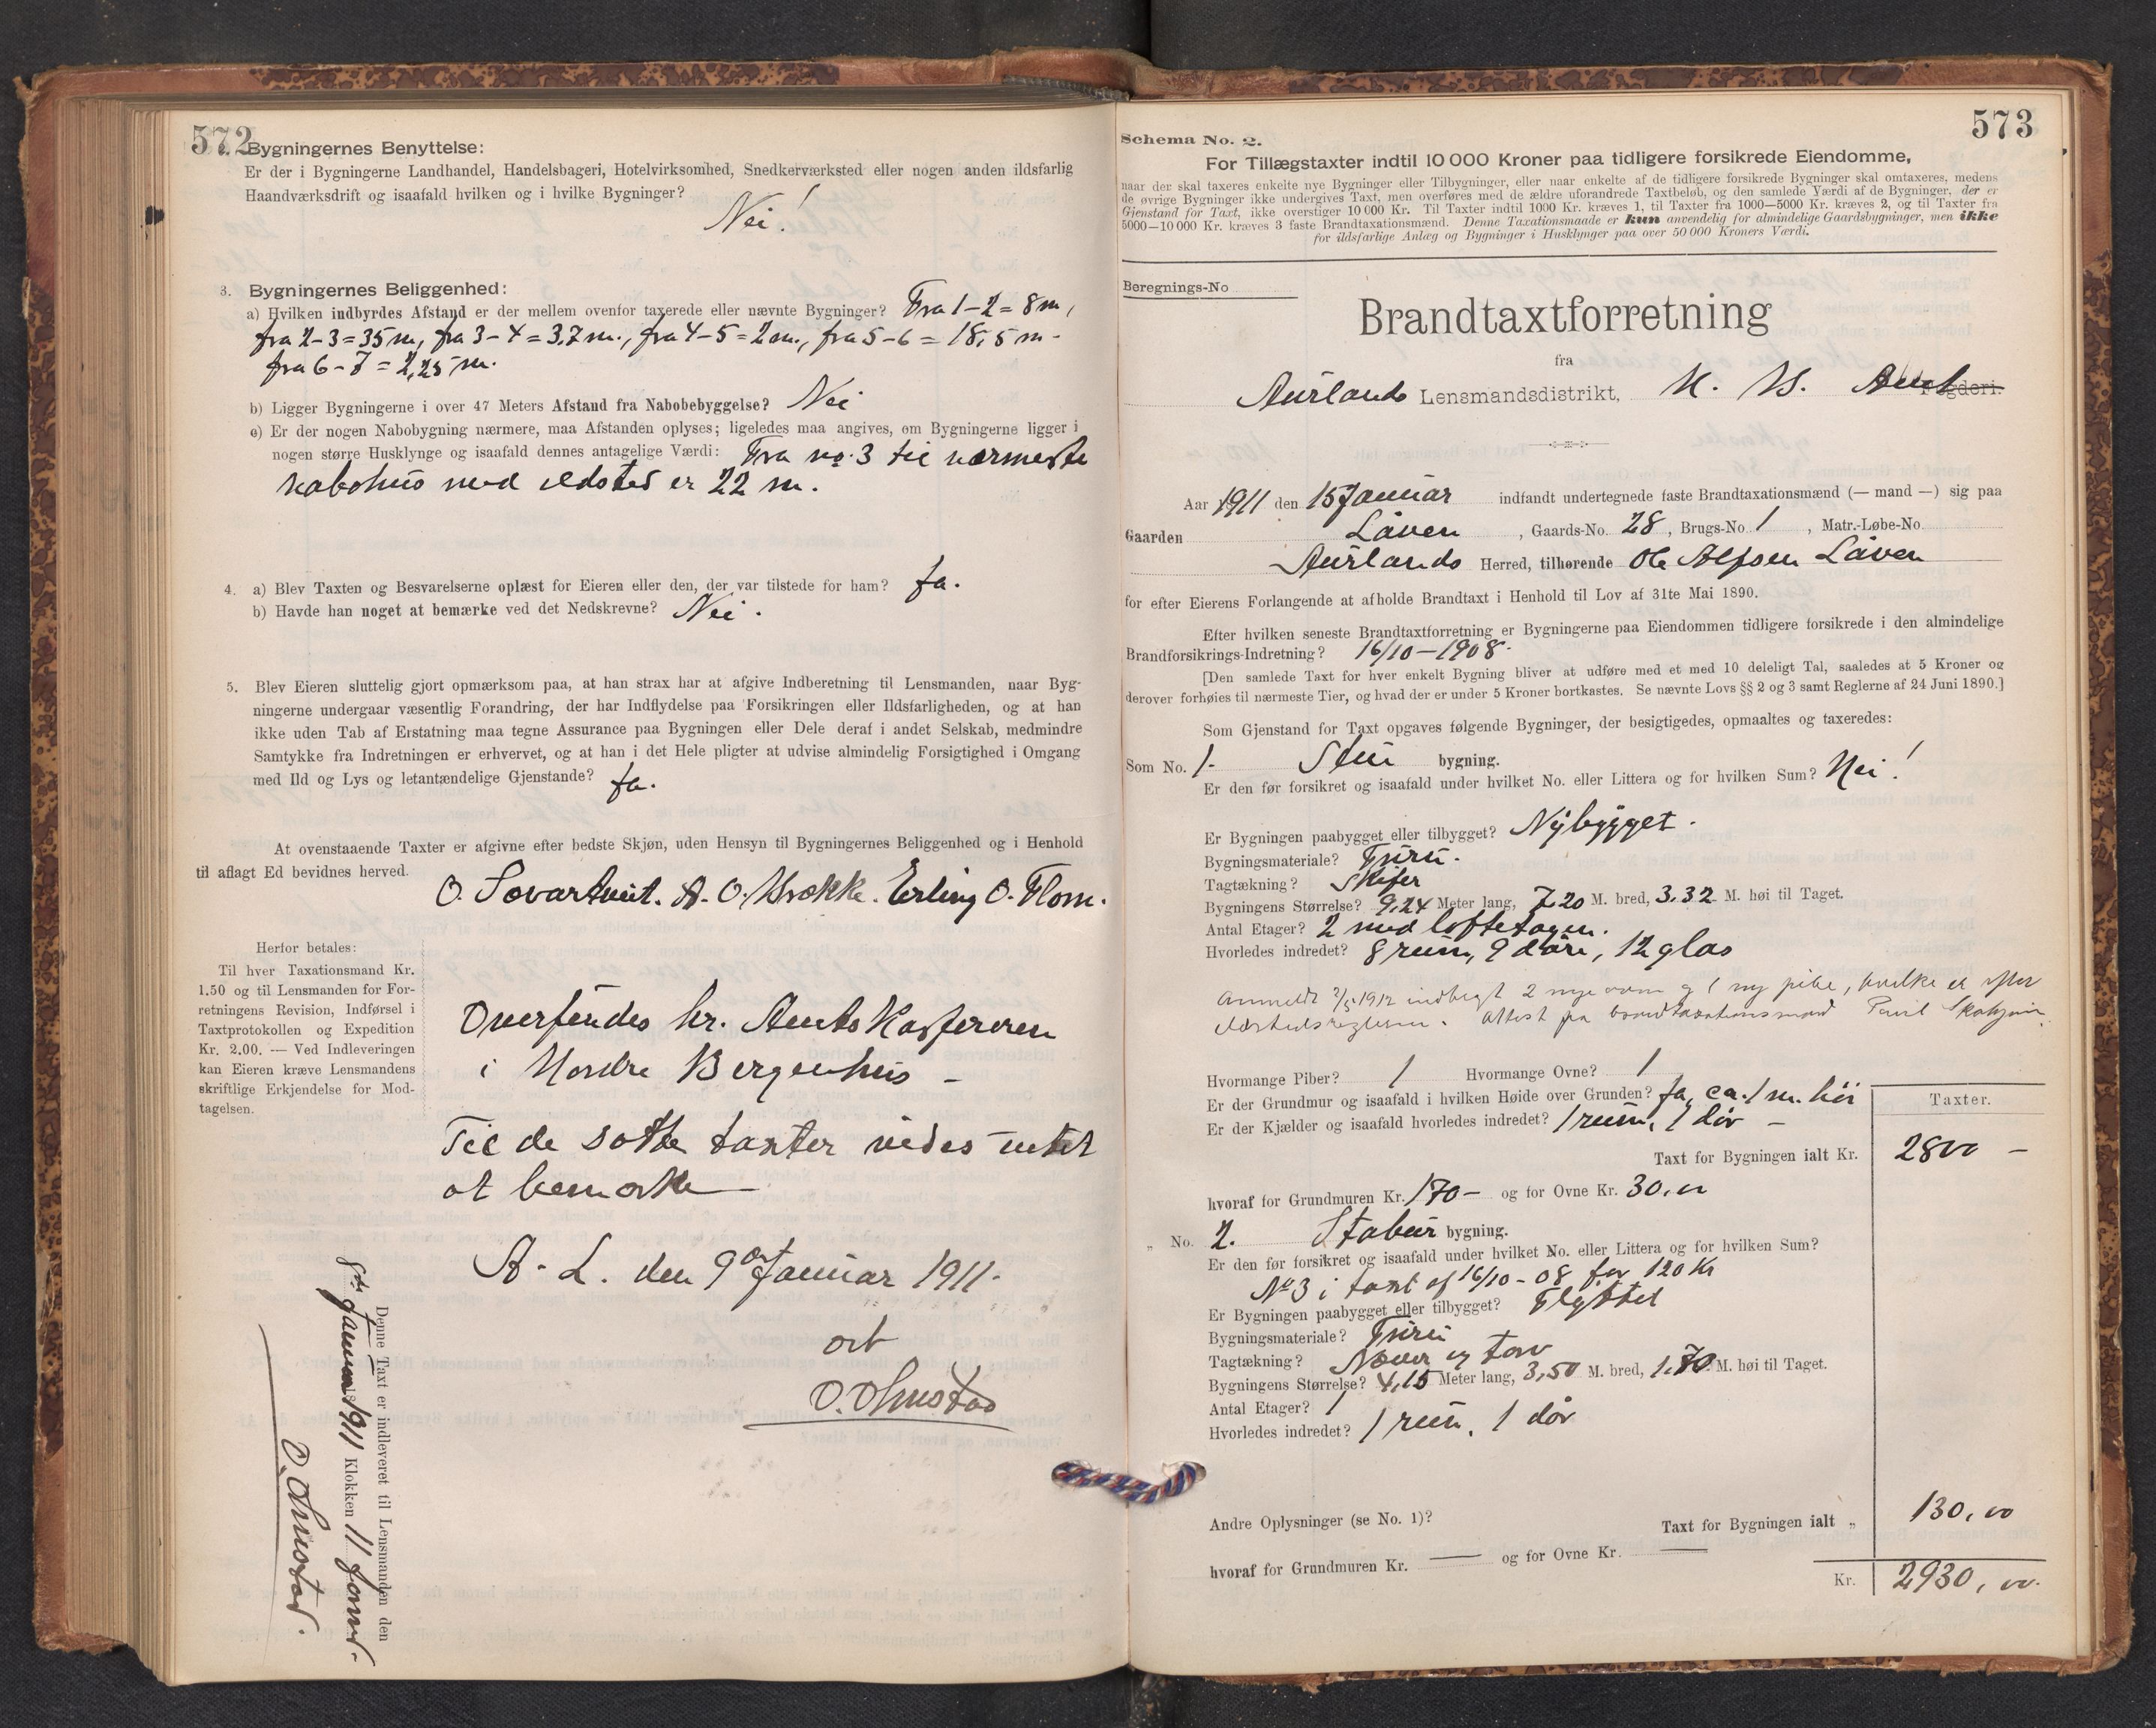 572
2. Bygningernes Benyttelse:
Er der i Bygningerne Landhandel, Handelsbageri, Hotelvirksomhed, Snedkerværksted eller nogen anden ildsfarlig
Haandværksdrift og isaafald hvilken og i hvilke Bygninger?
Nei!
3. Bygningernes Beliggenhed:
a) Hvilken indbyrdes Afstand er der mellem ovenfor taxerede eller nævnte Bygninger? Fra 1-2 = 8 m,
fra 2-3 = 35 m, fra 3-4 = 3,7 m., fra 4-5 = 2 m., fra 5-6 = 18,5 m -
fra 6-7 = 2,25 m.
b) Ligger Bygningerne i over 47 Meters Afstand fra Nabobebyggelse? Nei
c) Er der nogen Nabobygning nærmere, maa Afstanden oplyses; ligeledes maa angives, om Bygningerne ligger i
nogen større Husklynge og isaafald dennes antagelige Værdi: Fra no. 3 til nærmeste
nabohus med ildsted er 22 m.
4. a) Blev Taxten og Besvarelserne oplæst for Eieren eller den, der var tilstede for ham? Ja.
b) Havde han noget at bemærke ved det Nedskrevne? Nei.
5. Blev Eieren sluttelig gjort opmærksom paa, at han strax har at afgive Indberetning til Lensmanden, naar Byg-
ningerne undergaar væsentlig Forandring, der har Indflydelse paa Forsikringen eller Ildsfarligheden, og at han
ikke uden Tab af Erstatning maa tegne Assurance paa Bygningen eller Dele deraf i andet Selskab, medmindre
Samtykke fra Indretningen er erhvervet, og at han i det Hele pligter at udvise almindelig Forsigtighed i Omgang
med Ild og Lys og letantændelige Gjenstande? Ja.
At ovenstaaende Taxter er afgivne efter bedste Skjøn, uden Hensyn til Bygningernes Beliggenhed og i Henhold
til aflagt Ed bevidnes herved.
O. A. O. Erling O. Flom.
Herfor betales:
Til hver Taxationsmand Kr.
1.50 og til Lensmanden for For-
retningens Revision, Indførsel i
Taxtprotokollen og Expedition
Kr. 2.00. — Ved Indleveringen
kan Eieren kræve Lensmandens
skriftlige Erkjendelse for Mod-
tagelsen.
Oversendes hr. Amtskasereren
i Nordre Bergenhus -
Til de satte taxter vides intet
at bemærke -
A. L. den 9de Januar 1911.
O. Ohnstad
Denne Taxt er indleveret til Lensmanden den
8de Januar 1911 Klokken 11 form.
O. Ohnstad.
573
Schema No. 2.
For Tillægstaxter indtil 10 000 Kroner paa tidligere forsikrede Eiendomme,
naar der skal taxeres enkelte nye Bygninger eller Tilbygninger, eller naar enkelte af de tidligere forsikrede Bygninger skal omtaxeres, medens
de øvrige Bygninger ikke undergives Taxt, men overføres med de ældre uforandrede Taxtbeløb, og den samlede Værdi af de Bygninger, der er
Gjenstand for Taxt, ikke overstiger 10 000 Kr. Til Taxter indtil 1000 Kr. kræves 1, til Taxter fra 1000—5000 Kr. kræves 2, og til Taxter fra
5000—10 000 Kr. kræves 3 faste Brandtaxationsmænd. Denne Taxationsmaade er kun anvendelig for almindelige Gaardsbygninger, men ikke
for ildsfarlige Anlæg og Bygninger i Husklynger paa over 50 000 Kroners Værdi.
Beregnings-No
Brandtaxtforretning
fra
Aurlands Lensmandsdistrikt, N. B. Amt Fogderi.
Aar 1911 den 15 Januar indfandt undertegnede faste Brandtaxationsmænd (— mand —) sig paa
Gaarden Låven, Gaards-No. 28, Brugs-No. 1, Matr.-Løbe-No.
Aurlands Herred, tilhørende Ole Alfsen Låven
for efter Eierens Forlangende at afholde Brandtaxt i Henhold til Lov af 31te Mai 1890.
Efter hvilken seneste Brandtaxtforretning er Bygningerne paa Eiendommen tidligere forsikrede i den almindelige
Brandforsikrings-Indretning? 16/10-1908.
[Den samlede Taxt for hver enkelt Bygning bliver at udføre med et med 10 deleligt Tal, saaledes at 5 Kroner og
derover forhøies til nærmeste Tier, og hvad der er under 5 Kroner bortkastes. Se nævnte Lovs §§ 2 og 3 samt Reglerne af 24 Juni 1890.]
Som Gjenstand for Taxt opgaves følgende Bygninger, der besigtigedes, opmaaltes og taxeredes:
Som No. 1. Stue bygning.
Er den før forsikret og isaafald under hvilket No. eller Littera og for hvilken Sum? Nei!
Er Bygningen paabygget eller tilbygget? Nybygget.
Bygningsmateriale? Furu.
Tagtækning? Skifer
Bygningens Størrelse? 9,24 Meter lang, 7.20 M. bred, 3.32 M. høi til Taget.
Antal Etager? 2 med loftetagen.
Hvorledes indredet? 8 rum, 9 døre, 12 glas
Anmeldt 1912 indbygt 2 nye ovne og 1 ny pibe, hvilke er efter
Attest fra brandtaxationsmand
Hvormange Piber? 1 Hvormange Ovne? 1
Er der Grundmur og isaafald i hvilken Høide over Grunden? Ja, ca. 1 m. høi
Er der Kjælder og isaafald hvorledes indredet? 1 rum, 1 dör -
Taxter.
Taxt for Bygningen ialt Kr. 2800 -
hvoraf for Grundmuren Kr. 170 - og for Ovne Kr. 30.00
„ No. 2. Stabur bygning.
Er den før forsikret og isaafald under hvilket No. eller Littera og for hvilken Sum?
No 3 i taxt af 16/10-08 for 120 Kr
Er Bygningen paabygget eller tilbygget? Flyttet
Bygningsmateriale? Furu
Tagtækning? Næver og torv
Bygningens Størrelse? 4,15 Meter lang, 3,50 M. bred, 1.70 M. høi til Taget.
Antal Etager? 1
Hvorledes indredet? 1 rum, 1 dör
Andre Oplysninger (se No. 1)? Taxt for Bygningen ialt „ 130,00
hvoraf for Grundmuren Kr. — og for Ovne Kr. —
Kr. 2930,00.